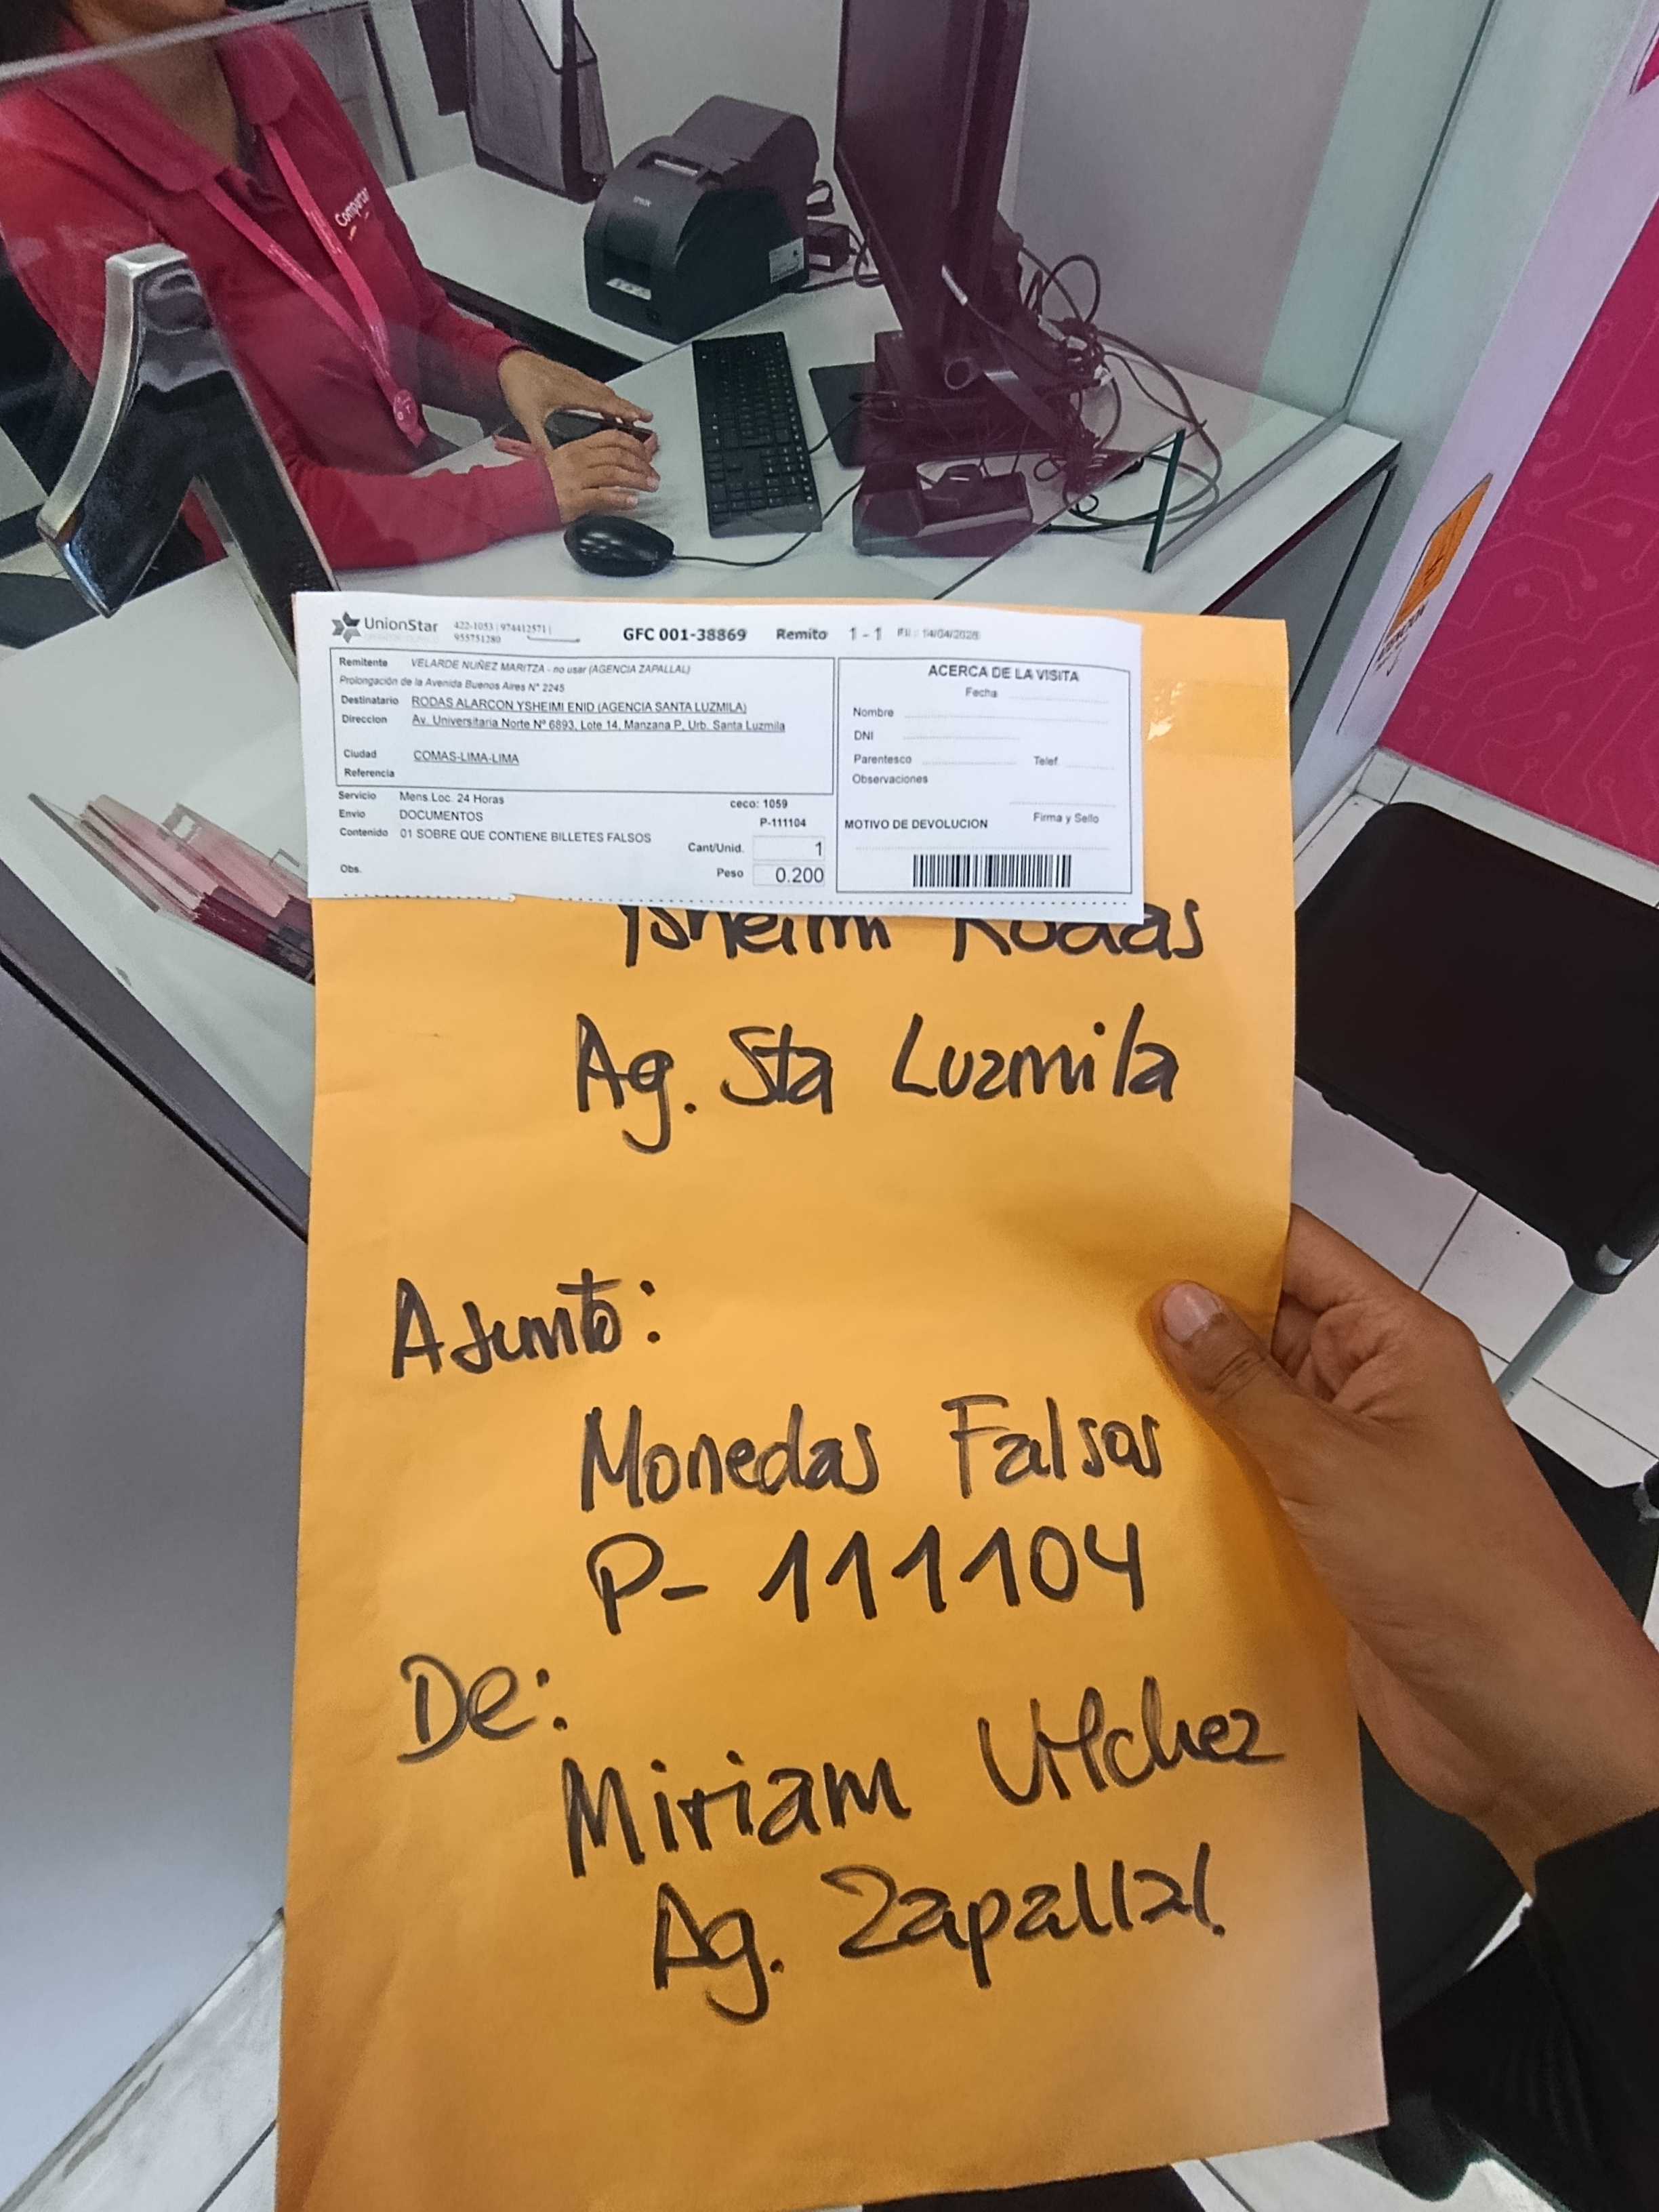 Compartar
EPSON
UnionStar
422-1053 | 974412571 |
955751280
GFC 001-38869 Remito 1 - 1
Remitente VELARDE NUÑEZ MARITZA - no usar (AGENCIA ZAPALLAL)
Prolongación de la Avenida Buenos Aires N° 2245
Destinatario RODAS ALARCON YSHEIMI ENID (AGENCIA SANTA LUZMILA)
Direccion Av. Universitaria Norte Nº 6893, Lote 14, Manzana P, Urb. Santa Luzmila
Ciudad COMAS-LIMA-LIMA
Referencia
Servicio Mens.Loc. 24 Horas
ceco: 1059
Envio DOCUMENTOS
P-111104
Contenido 01 SOBRE QUE CONTIENE BILLETES FALSOS
Cant/Unid. 1
Obs.
Peso 0.200
ACERCA DE LA VISITA
Fecha
Nombre
DNI
Parentesco Telef.
Observaciones
MOTIVO DE DEVOLUCION Firma y Sello
Ysheimi Rodas
Ag. Sta Luzmila
Asunto:
Monedas Falsas
P- 111104
De:
Miriam Vilchez
Ag. Zapallal